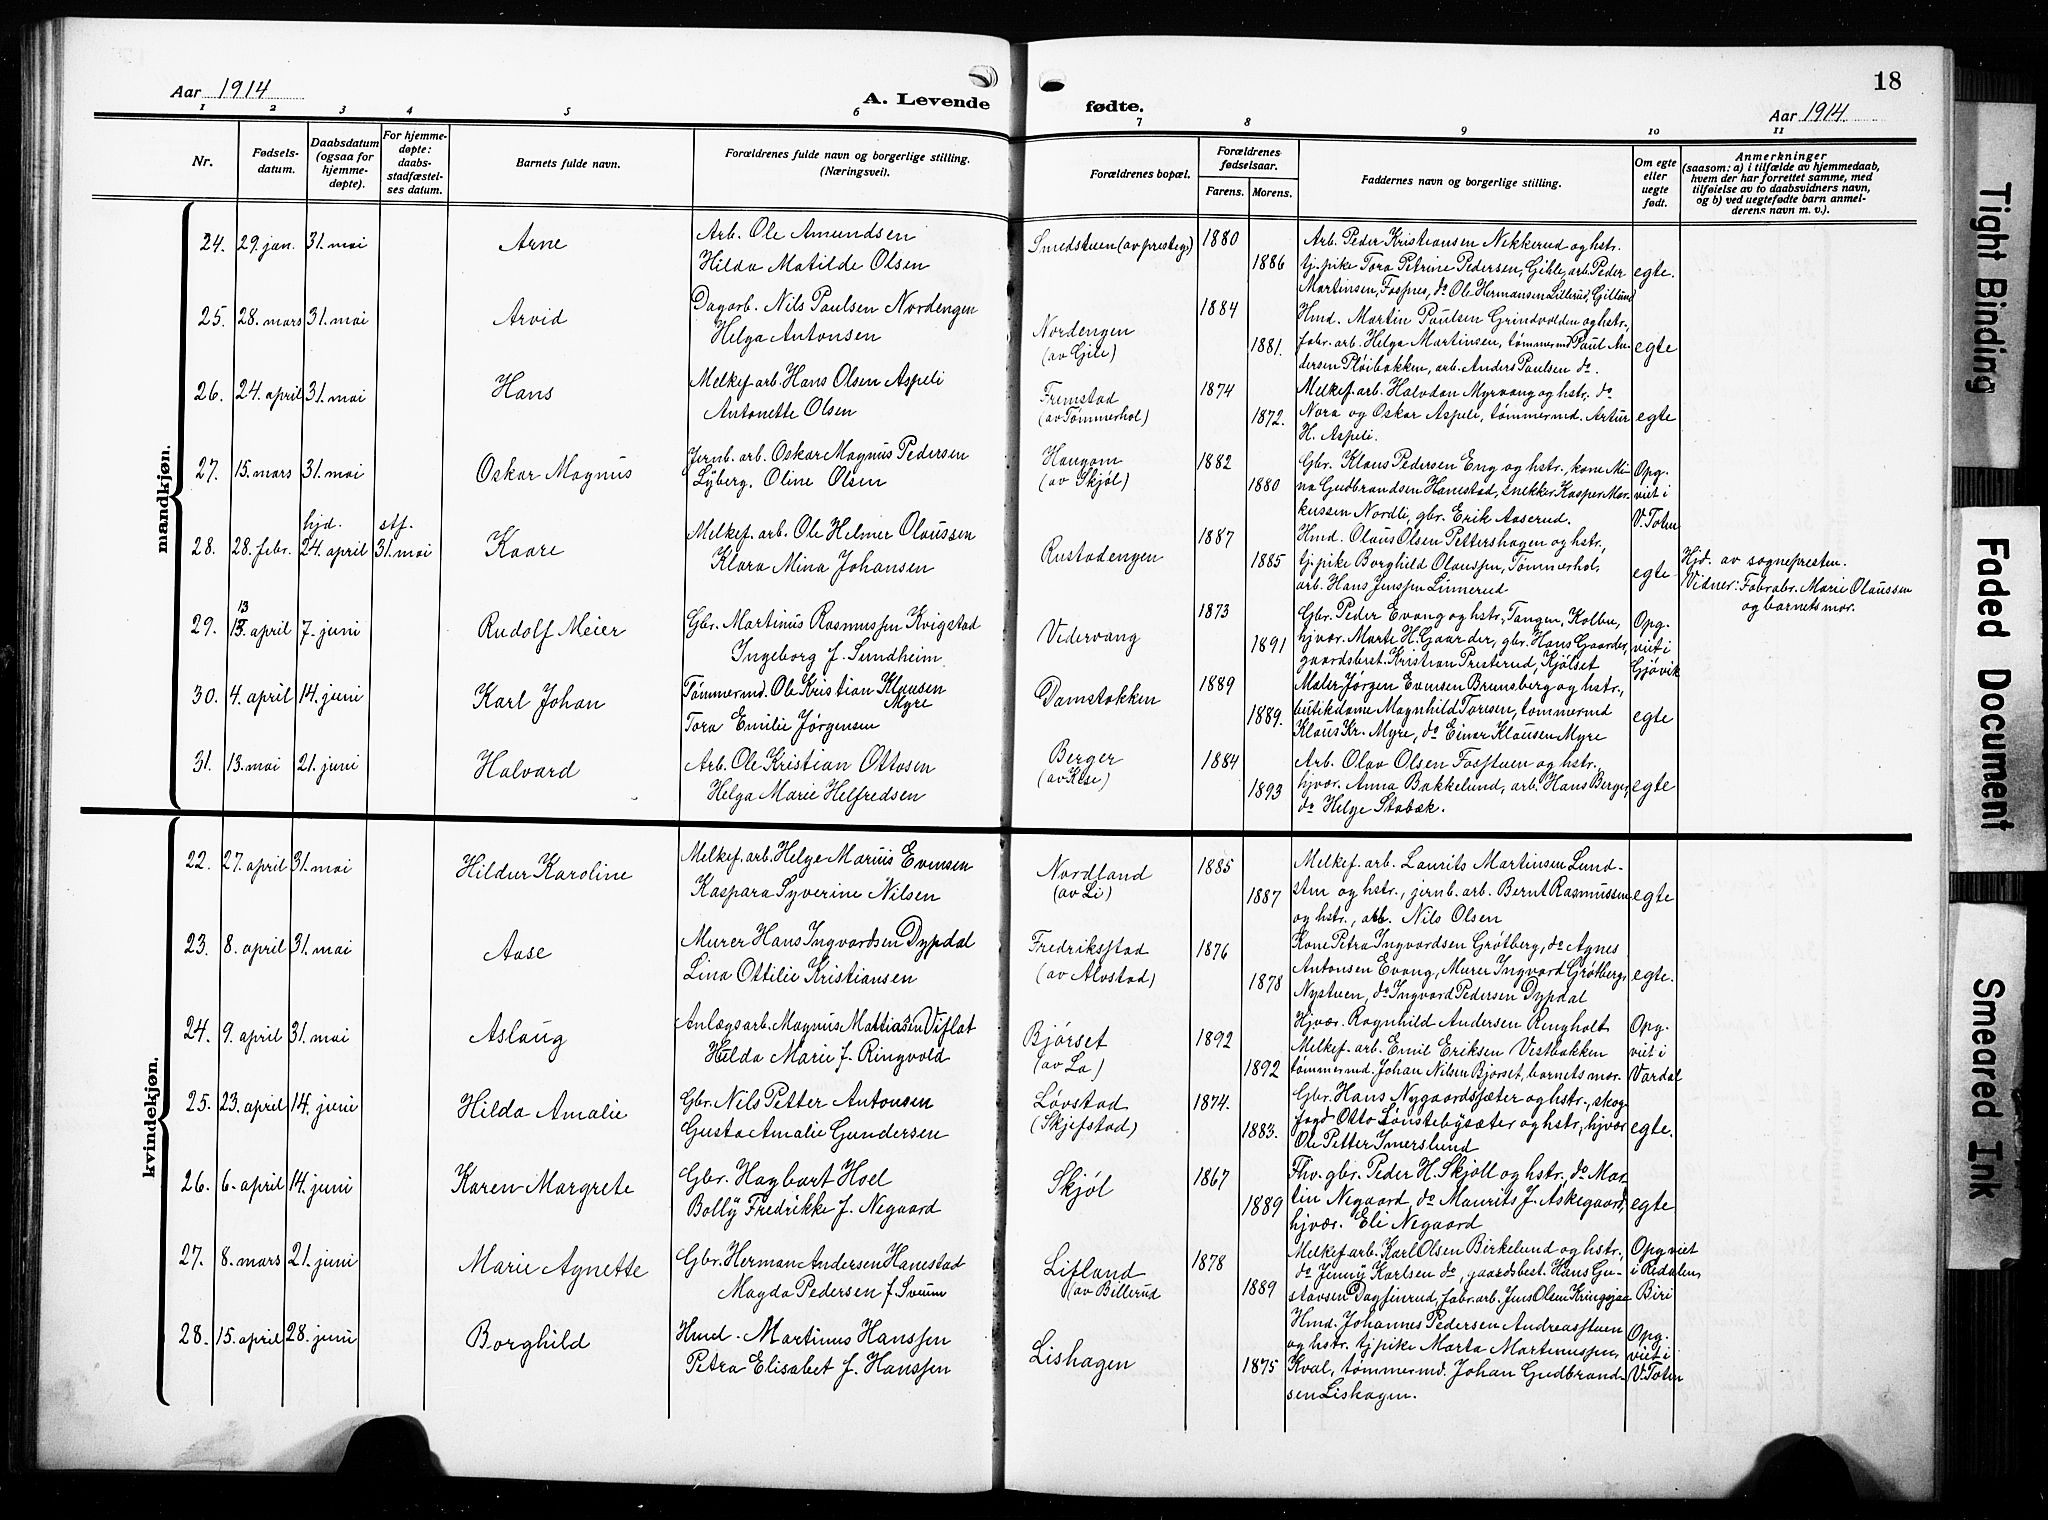 18
Aar 1914
A. Levende fødte.
Aar 1914
1 2 3 4 5 6 7 8 9 10 11
Nr.
Fødsels-
datum.
Daabsdatum
(ogsaa for
hjemme-
døpte).
For hjemme-
døpte:
daabs-
stadfæstel-
ses datum.
Barnets fulde navn.
Forældrenes fulde navn og borgerlige stilling.
(Næringsvei).
Forældrenes bopæl.
Forældrenes
fødselsaar.
Farens. Morens.
Faddernes navn og borgerlige stilling.
Om egte
eller
uegte
født.
Anmerkninger
(saasom: a) i tilfælde av hjemmedaab,
hvem der har forrettet samme, med
tilføielse av to daabsvidners navn,
og b) ved uegtefødte barn anmel-
derens navn m. v.).
mandkjøn.
24. 29. jan. 31. mai Arne
Arb. Ole Amundsen
Hilda Matilde Olsen
Smedstuen (av prestegs)
1880
1886
Arb. Peder Kristiansen Nekkerud og hstr.
tj. pike Tora Petrine Pedersen, Gihle, arb. Peder
Martinsen, Fospes, do Ole Hermansen Lillerud, Gillund
egte.
25. 28. mars 31. mai Arvid
Dagarb. Nils Paulsen Nordengen
Helga Antonsen
Nordengen
(av Gile)
1884
1881.
Hmd. Martin Paulsen Grindvolden og hstr.,
fabr. arb. Helga Martinsen, tømmermd Paul An-
dersen Pløibakken, arb. Anders Paulsen do.
egte
26. 24. april 31. mai Hans
Melkef. arb. Hans Olsen Aspeli
Antonette Olsen
Fremstad
(av Tømmerhol)
1874
1872.
Melkef. arb. Halvdan Myrvang og hstr. do
Nora og Oskar Aspeli, tømmermd. Artur
H. Aspeli.
egte
27. 15. mars 31. mai Oskar Magnus
Jernb. arb. Oskar Magnus Pedersen
Lyberg. Oline Olsen
Haugom
(av Skjøl)
1882
1880
Gbr. Klaus Pedersen Eng og hstr., kone Mi-
na Gudbrandsen Hanestad, snekker Kasper Mar-
kussen Nordli, gbr. Erik Aaserud.
Opg.
viet i
V. Toten
28. 28. febr. hjd. 24. april stf. 31. mai Kaare
Melkef. arb. Ole Helmer Olaussen
Klara Mina Johansen
Rustadengen
1887
1885
Hmd. Olaus Olsen Pettershagen og hstr.,
tj. pike Borghild Olaussen, Tømmerhol,
arb. Hans Jenssen Linnerud
egte
Hjd. av sognepresten.
Vidner: Fabrabr. Marie Olaussen
og barnets mor.
29. 13. april 7. juni Rudolf Meier
Gbr. Martinus Rasmussen Kvigstad
Ingeborg f. Sundheim
Vedervang
1873
1891
Gbr. Peder Evang og hstr., Tangen, Kolbu,
hjvær. Marte H. Gaarder, gbr. Hans Gaarder,
gaardsbest. Kristian Prusterud, Kjølset
Opg-
viet i
Gjøvik
30. 4. april 14. juni Karl Johan
Tømmermd. Ole Kristian Klausen
Myre
Tora Emilie Jørgensen
Damstokken
1889
1889.
Maler Jørgen Evensen Brunsberg og hstr.,
butikdame Magnhild Toresen, tømmermd
Klaus Kr. Myre, do Einar Klausen Myre
egte
31. 13. mai 21. juni Halvard
Arb. Ole Kristian Ottosen
Helga Marie Helfredsen
Berger
(av Kise)
1884
1893
Arb. Olav Olsen Fosstuen og hstr.,
hjvær. Anna Bakkelund, arb. Hans Berger,
do Helge Stabæk.
egte
kvindekjøn.
22. 27. april 31. mai Hildur Karoline
Melkef. arb. Helge Marius Evensen
Kaspara Syverine Nilsen
Nordland
(av Li)
1885
1887
Melkef. arb. Laurits Martinsen Lund-
stm og hstr., jernb. arb. Bernt Rasmussen
og hstr., arb. Nils Olsen
egte
23. 8. april 31. mai Aase
Murer Hans Ingvardsen Dypdal
Lina Ottilie Kristiansen
Fredriksstad
(av Alvstad)
1876
1878
Kone Petra Ingvardsen Grøtberg, do Agnes
Antonsen Evang, Murer Ingvard Grøtberg,
Nystuen, do Ingvard Pedersen Dypdal
egte.
24. 9. april 31. mai Aslaug
Anlægsarb. Magnus Mattiasen Viflat
Hilda Marie f. Ringvold
Bjørset
(av La)
1892
1892
Hjvær. Ragnhild Andersen Ringholt
Melkef. arb. Emil Eriksen Vestbakken
tømmermd. Johan Nilsen Bjørset, barnets mor.
Opg-
viet i
Vardal
25. 23. april 14. juni Hilda Amalie
Gbr. Nils Petter Antonsen
Gusta Amalie Gundersen
Løvstad
(Skjefstad)
1874.
1883.
Gbr. Hans Nygaardssæter og hstr., skog-
fogd Otto Lønstebysæter og hstr., hjvær
Ole Petter Imerslund
egte.
26. 6. april 14. juni Karen Margrete
Gbr. Hagbart Hoel
Bolly Fredrikke f. Negaard
Skjøl
1867
1889
Fhv. gbr. Peder H. Skjøll og hstr., do Mar-
tin Negaard, do Maurits J. Askegaard,
hjvær. Eli Negaard
egte
27. 8. mars 21. juni Marie Agnette
Gbr. Herman Andersen Hanestad
Magda Pedersen f. Sveum
Lifland
(av Billerud
1878
1889
Melkef. arb. Karl Olsen Birkelund og hstr.,
do Jenny Karlsen do, gaardsbest. Hans Gu-
stavsen Dagfinrud, fabr. arb. Jens Olsen Kringsjaa
Opg viet
i Redalen,
Biri
28. 15. april 28. juni Borghild
Hmd. Martinus Hanssen
Petra Elisabet f. Hanssen
Lishagen
1875
Hmd. Johannes Pedersen Andreasstuen
og hstr. tj. pike Marta Martinussen,
Kval, tømmermd. Johan Gudbrand-
sen Lishagen.
Opg.
viet i
V. Toten
Tight Binding
Faded Document
Smeared Ink